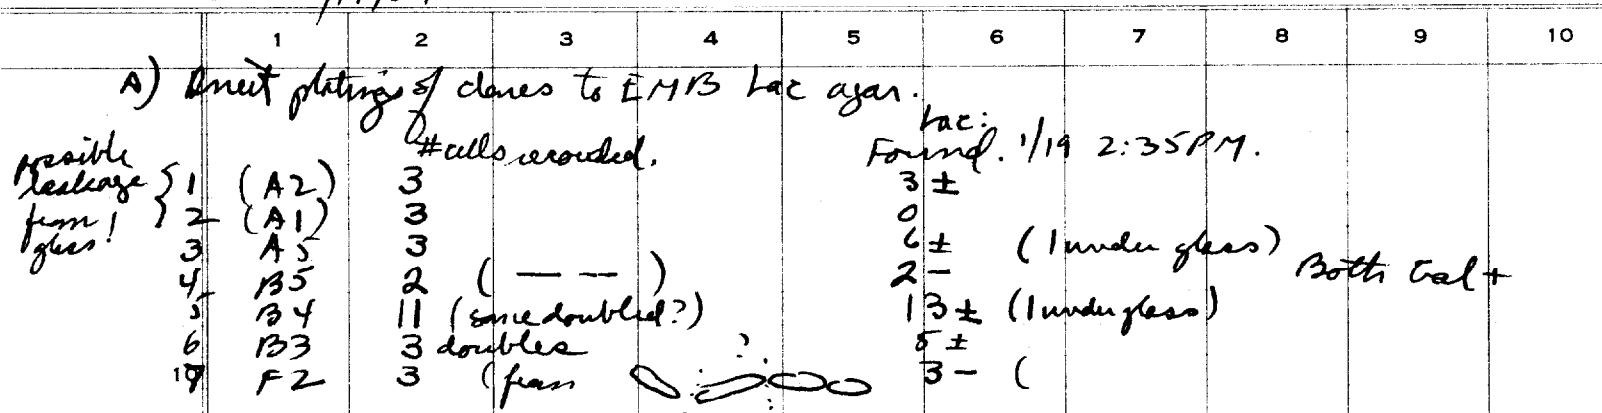 1 2 3 4 5 6 7 8 9 10
A) Direct platings of clones to EMB Lac agar.
# cells recorded. Lac:
Found. 1/19 2:35PM.
possible leakage from glass!
1 (A2) 3 3 ±
2 (A1) 3 0
3 A5 3 6 ± (1 under glass)
4 B5 2 ( — — ) 2 - Both Gal +
5 B4 11 (some doubled?) 13 ± (1 under glass)
6 B3 3 doubles 5 ±
7 F2 3 (from ? 3 - (